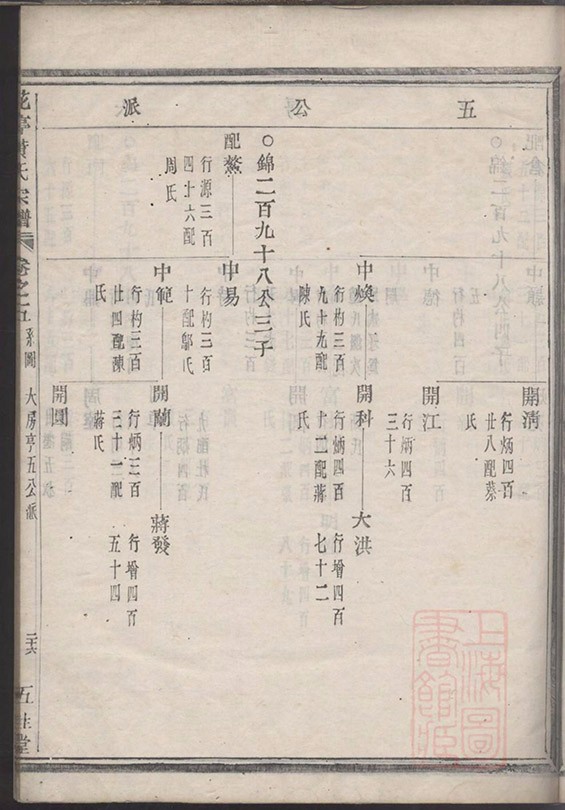 五公派
開清
行炳四百
廿八配蔡
氏
開江
行炳四百
三十六
中煥
行杓三百
九十九配
陳氏
開科
行炳四百
十二配蔣
氏
大洪
行增四百
七十二
○錦二百九十八公三子
配鰲
行源三百
四十六配
周氏
中易
行杓三百
十配鄔氏
中範
行杓三百
廿四配陳
氏
開蘭
行炳三百
三十一配
蔣氏
蔣發
行增四百
五十四
開園
氏宗譜
卷之五
系圖
大房亨五公派
二十六
上海圖書館藏